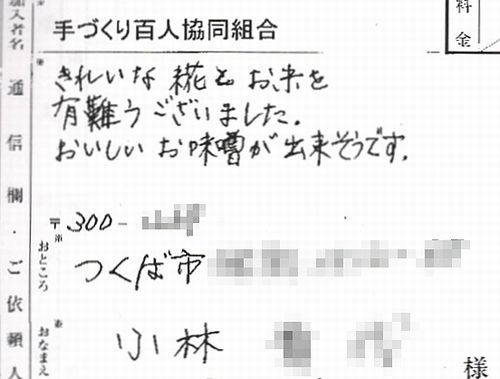 加入者名
手づくり百人協同組合
料金
通信欄・ご依頼人
きれいな糀とお米を
有難うございました。
おいしいお味噌が出来そうです。
〒300-
おところ
つくば市
おなまえ
小林
様